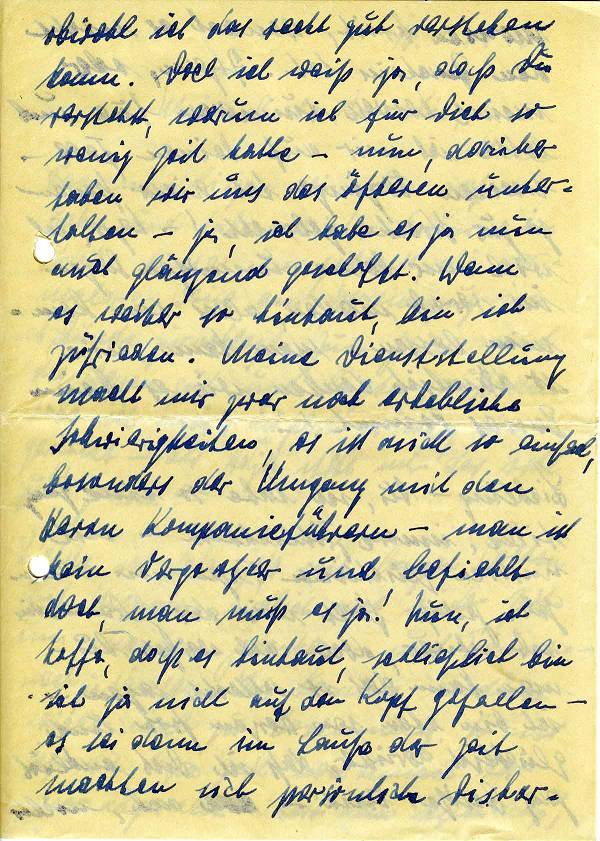 obwohl ich das recht gut verstehen
kann. Doch ich weiß ja, daß Du
verstehst, warum ich für Dich so
wenig Zeit hatte – nun, darüber
haben wir uns des öfteren unter-
halten – ja, ich habe es ja nun
auch glänzend geschafft. Wenn
es weiter so hinhaut, bin ich
zufrieden. Meine Dienststellung
macht mir zwar noch erhebliche
Schwierigkeiten, es ist nicht so einfach,
besonders der Umgang mit den
Herrn Kompanieführern – man ist
kein Vorgesetzter und befiehlt
doch, man muß es ja! Nun, ich
hoffe, daß es hinhaut, schließlich bin
ich ja nicht auf den Kopf gefallen –
es sei denn im Laufe der Zeit
machten sich persönliche Dishar-